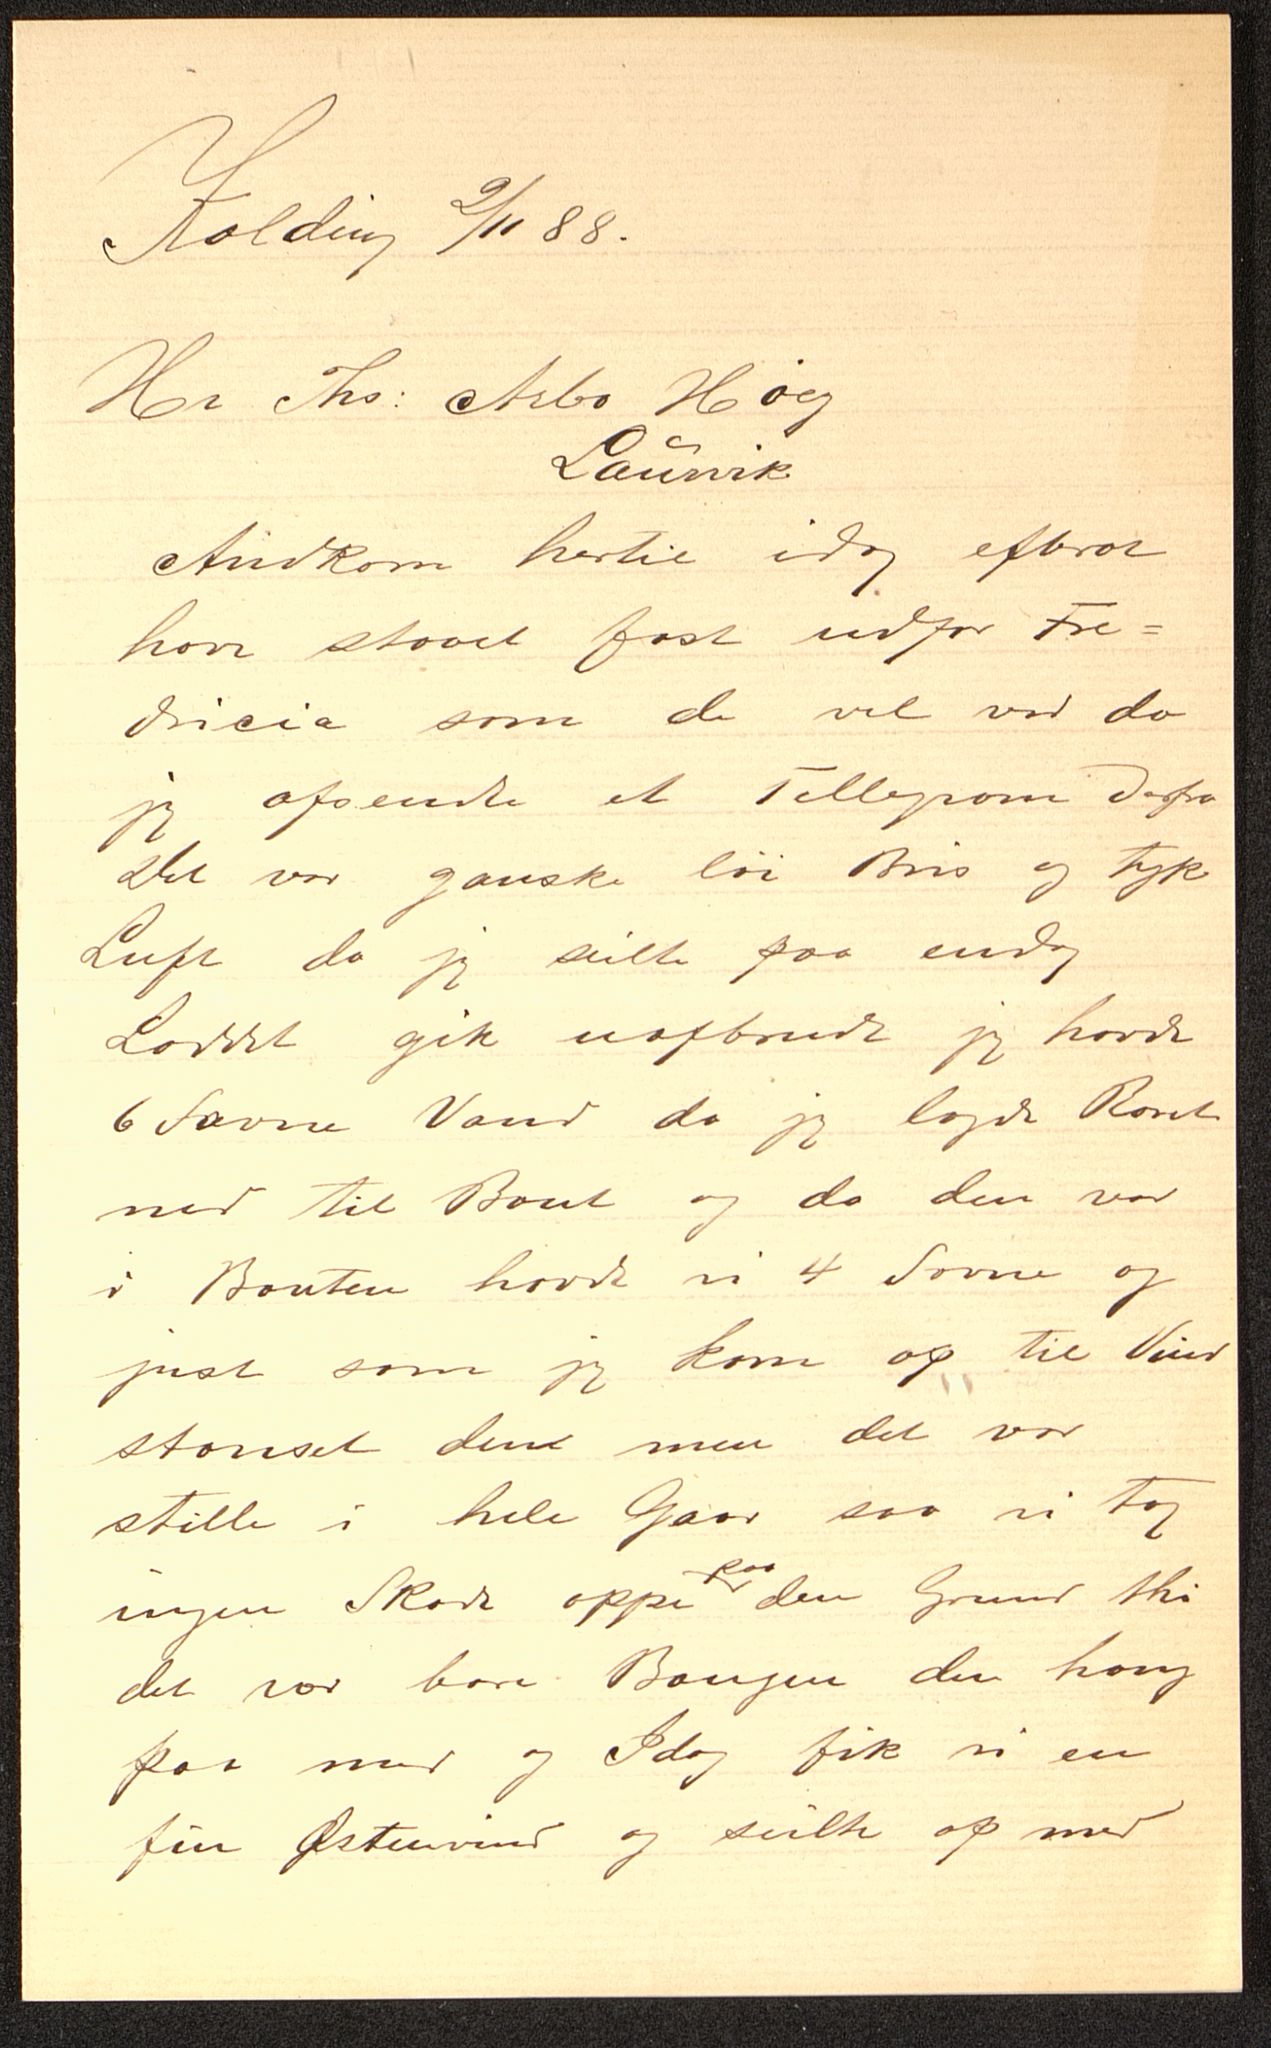 Kolding 2/11 88.
Hr Ths: Arbo Høeg
Laurvik
Andkom hertil idag efterat
have staaet fast udfor Fre=
dricia som de vel ved da
jeg afsendte et Tellegram derfra
Det var ganske löi Bris og tyk
Luft da jeg seilte paa endog
Loddet gik uafbrudt jeg havde
6 Favne Vand da jeg lagde Roret
ned til Bout og da den var
i Bouten havde vi 4 Favne og
just som jeg kom op til Vind
stanset den men det var
stille i hele Gaar saa vi tog
ingen Skade oppe paa den Grund thi
det var bare Bougen den hang
paa med og Idag fik vi en
fin Østenvind og seilte op med